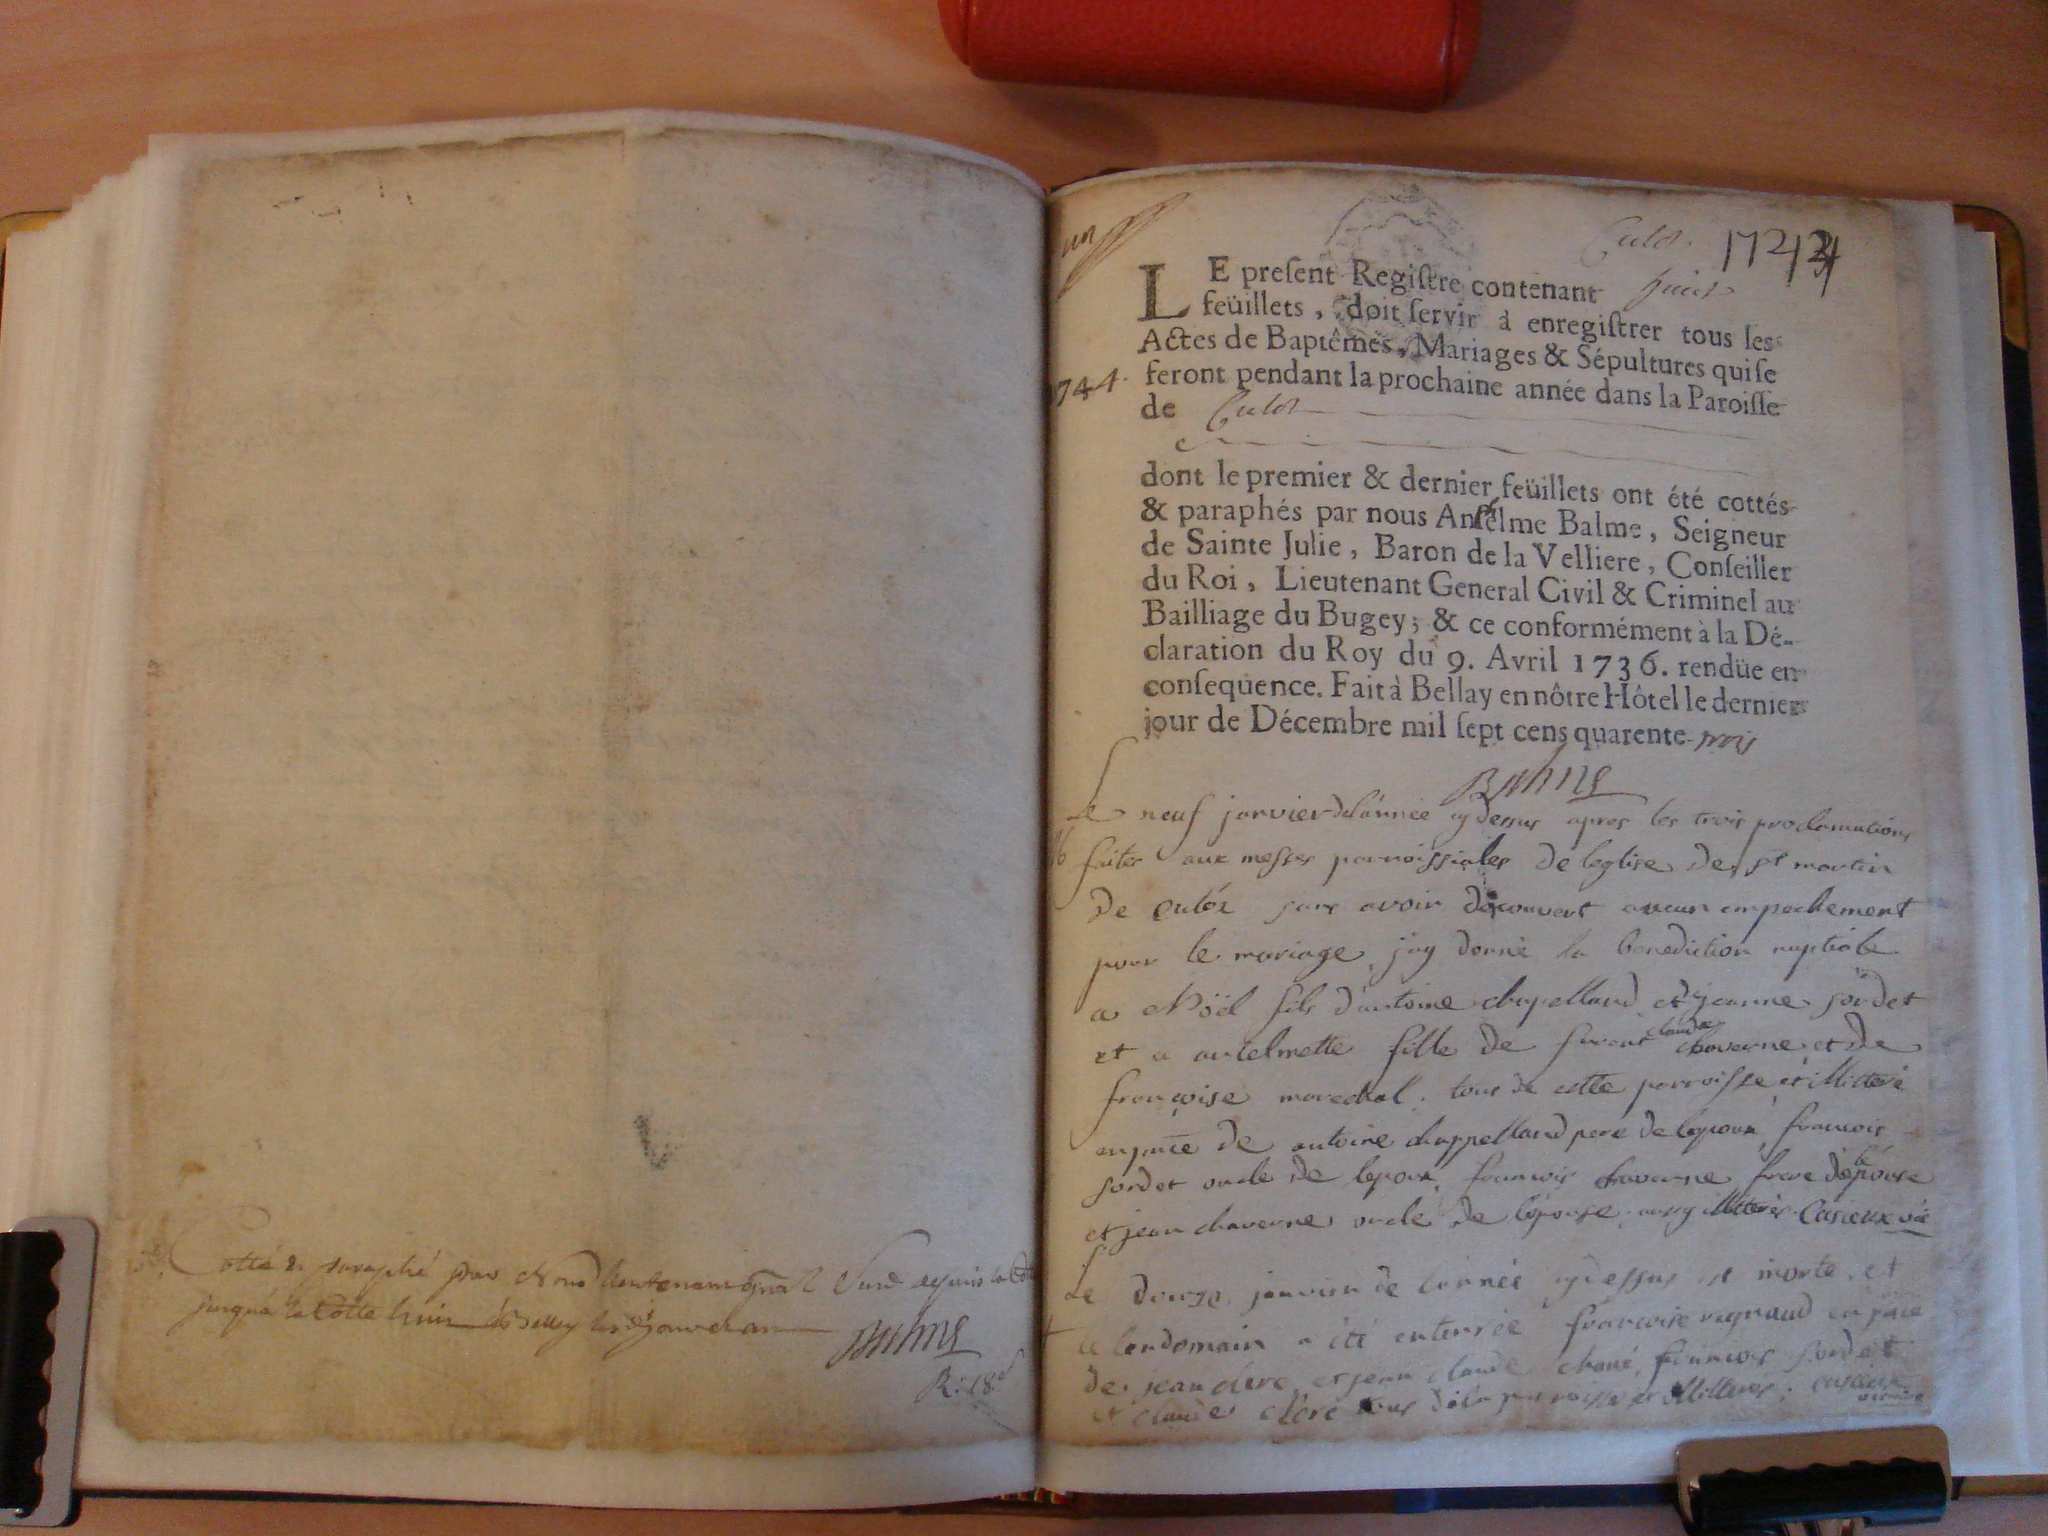 Cotté & paraphé par Nous Lieutenant gnal
jusqu'à la Cotte huit
Balme
R: 18 d
un
Culoz. 1744
LE preſent Regiſtre contenant huit
feüillets, doit ſervir à enregiſtrer tous les
Actes de Baptêmes, Mariages & Sépultures qui ſe
1744. feront pendant la prochaine année dans la Paroiſſe
de Culoz
dont le premier & dernier feüillets ont été cottés
& paraphés par nous Anthelme Balme, Seigneur
de Sainte Julie, Baron de la Velliere, Conſeiller
du Roi, Lieutenant General Civil & Criminel au
Bailliage du Bugey; & ce conformément à la Dé-
claration du Roy du 9. Avril 1736. rendüe en
conſequence. Fait à Bellay en nôtre Hôtel le dernier
jour de Décembre mil ſept cens quarente trois
Balme
Le neuf janvier de l'année cy dessus apres les trois proclamations
faites aux messes parroissiales de l'eglise de st martin
de culoz sans avoir découvert aucun empechement
pour le mariage j'ay donné la benediction nuptiale
a Nöel fils d'antoine chapelland et de jeanne sordet
et a antelmette fille de claude chaverne et de
francoise marechal. tous de cette parroisse et illitteré
en pnce de antoine chappelland pere de lepoux francois
sordet oncle de lepoux francois chaverne frere de lépouse
et jean chaverne oncle de l'épouse aussy illitterés. Casieux vic
Le douze janvier de l'année cy dessus est morte et
le lendemain a été enterrée francoise regnaud en pnce
de jean clerc et jean claude francois sordet
et claude clerc tous de la parroisse et illitterés. casieux
vicaire